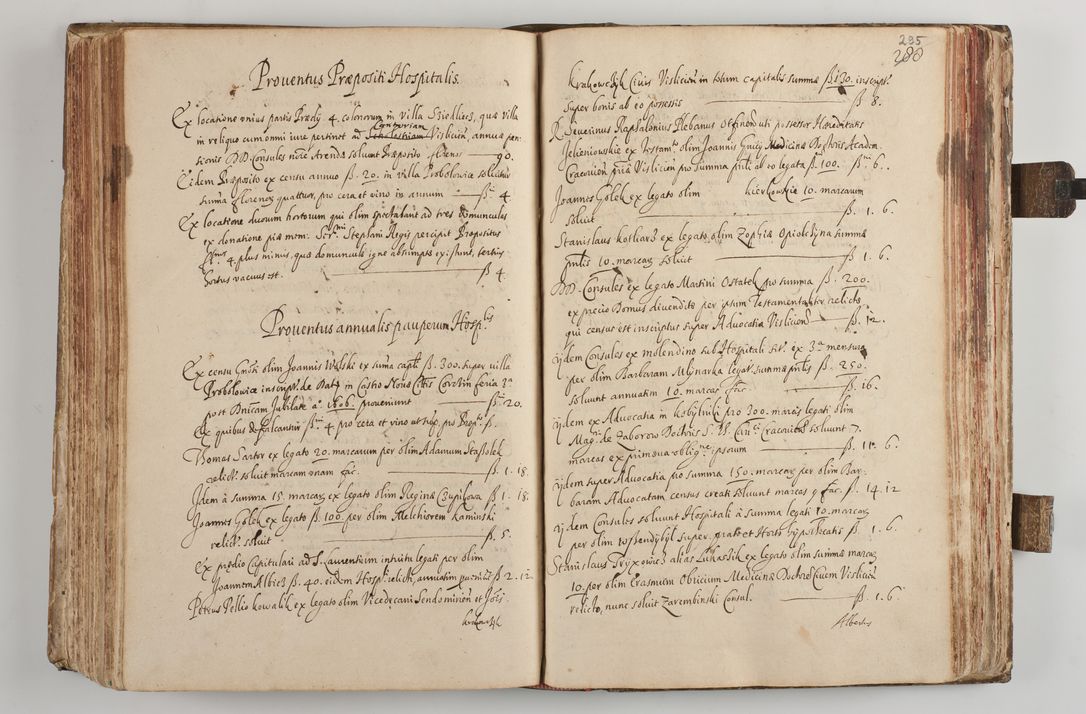 Proventus Præpositi Hospitalis.
Ex locatione unius partis Prædy 4. colonorum in villa Sziedliecz, quæ villa
in reliquo cum omni iure pertinet ad Cantoriam Vislicien, annuæ pen
sionis DD. Consules noīe Arendæ solvunt Præposito florens 90.
Eidem Præposito ex censu annuo ß. 20. in villa Probolovice
summa florenos quattuor, pro cera et vino in annum ß. 4
Ex locatione duorum hortorum qui olim spectabant ad tres domunculas
ex donatione piæ mem: Serᵐⁱ Stephani Regis percipit Præpositus
4. plus minus, quæ domunculæ igne absumptæ existunt, tertius
hortus vacuus est. ß 4
Proventus annualis pauperum Hospˡⁱˢ
Ex censu Gnosi olim Joannis Walski ex suma capli ß. 300. super villa
Probolovice inscript. de Dat in Castro Novæ Cittis Corczin feria 3ᵃ
post Dnicam Jubilate aº 1606. proveniunt ß. 20.
Ex quibus defalcantur 4 pro cera et vino ut sup. pro Præpto ß.
Thomas Sartor ex legato 20. marcarum per olim Adamum Staszolek
relict. solvit marcam unam fac. ß. 1. 18.
Idem à summa 15. marcar ex legato olim Reginæ Czupikova ß 1. 18.
Joannes Golek ex legato ß. 100. per olim Melchiorem Kaminski
relict. solvit ß. 5.
Ex prædio Capitulari ad S. Laurentium intuitu legati per olim
Joannem Albicz ß. 40. eidem Hospli relicti, annuatim ß 2. 12
Petrus Pellio kowalik ex legato olim Vicedecani Sendomirien et Jois
krakowczyk
295
280
Krakowczyk Civis Vislicien in totum capitalis summæ ß 130. inscript
super bonis ab eo possessis ß 8.
R. Severinus Raphalonius Plebanus uti possessor Hæreditatis
Jelieniowskie ex testamto olim Joannis Gnicij Medicinæ Doctoris Academ.
Cracovien prius Vislicien pro summa pnli ab eo legata ß 100. ß. 6.
Joannes Golek ex legato olim kierkowskie 10. marcarum
solvit ß. 1. 6.
Stanislaus kotliarz ex legato olim Zophiæ Opiolczyna summæ
pnlis 10. marcar solvit ß 1. 6.
DD. Consules ex legato Martini Ostatek pro summa ß. 200.
ex precio Domus divenditæ per ipsum Testamentaliter relicto
qui census est inscriptus super Advocatia Vislicien ß. 12.
ijdem Consules ex molendino sub Hospitali sit. ex 3ᵃ mensura
per olim Barbaram Mlynarka legat. summæ pnlis ß. 250.
solvunt annuatim 10. marcas fac. ß. 16.
ijdem ex Advocatia in kobylniki pro 300. marcis legati olim
Mag. de Zaborow Doctoris S. Th. Can. Cracovien solvunt 7.
marcas ex primæva obligne ipsorum ß. 11. 6.
ijdem super Advocatia pro summa 150. marcar per olim Bar-
baram Advocatam census creati solvunt marcas 9 fac. ß. 14. 12
ijdem Consules solvunt Hospitali à summa legati 10. marcar
per olim super prato et Horto hypothecatis ß. 1. 6.
Stanislaus Tryxowicz alias Lukassik ex legato olim summæ marcar
10. per olim Erasmum Obricium Medicinæ Doctore Civem Vislicien
relicto, nunc solvit Zarembinski Consul. ß. 1. 6.
Albertus